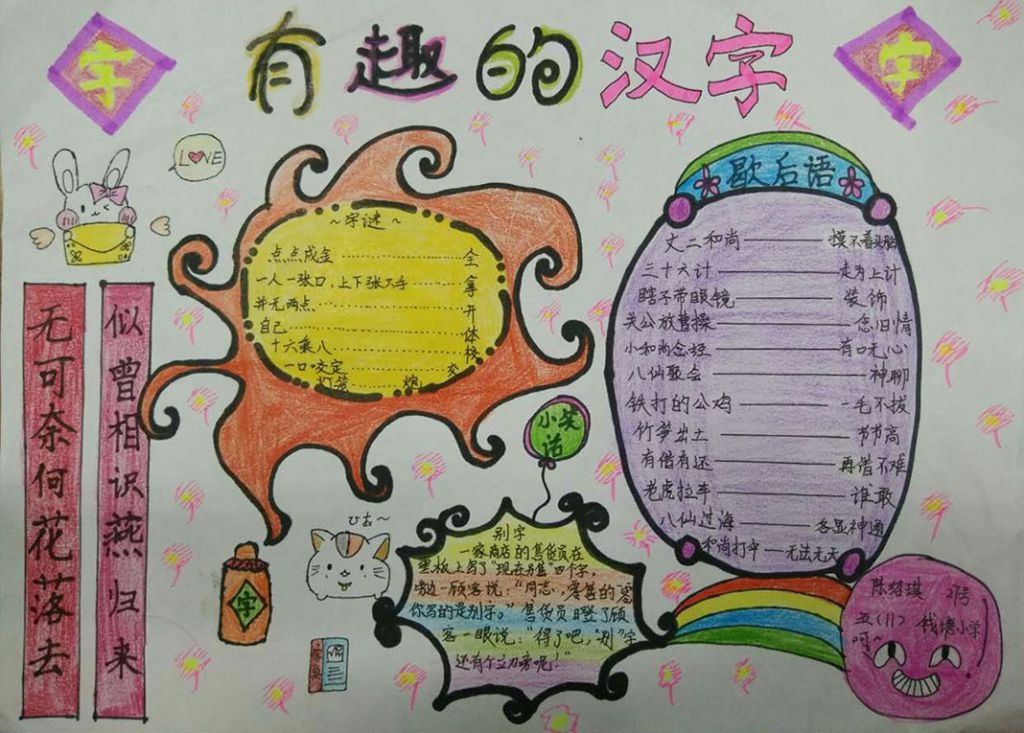 字
有趣的汉字
字
LOVE
无可奈何花落去
似曾相识燕归来
~字谜~
点点成金 全
一人一张口,上下张大手 拿
并无两点 开
自己 体
十六乘八 校
一口咬定 交
灯笼 炮
歇后语
丈二和尚 摸不着头脑
三十六计 走为上计
瞎子带眼镜 装饰
关公放曹操 念旧情
小和尚念经 有口无心
八仙聚会 神聊
铁打的公鸡 一毛不拔
竹笋出土 节节高
有借有还 再借不难
老虎拉车 谁敢
八仙过海 各显神通
和尚打伞 无法无天
小笑话
别字
一家商店的售货员在
黑板上写了"现在别售"四个字,
一顾客说:"同志,零售的"零
你写的是别字。"售货员瞪了顾
客一眼说:"得了吧,"别"字
还有个立刀旁呢!"
字
陈绍琪 2号
五(11) 钱塘小学
呵~